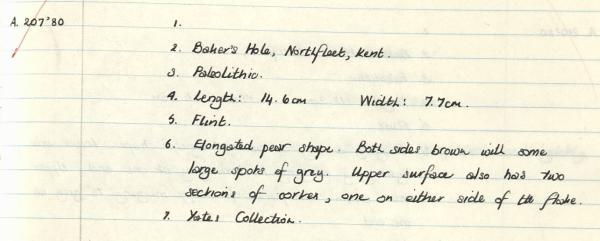 A. 207'80
1.
2. Baker's Hole, Northfleet, Kent.
3. Paleolithic.
4. Length: 14.6cm Width: 7.7cm.
5. Flint.
6. Elongated pear shape. Both sides brown with some
large spots of grey. Upper surface also has two
sections of cortex, one on either side of the flake.
7. Yates Collection.